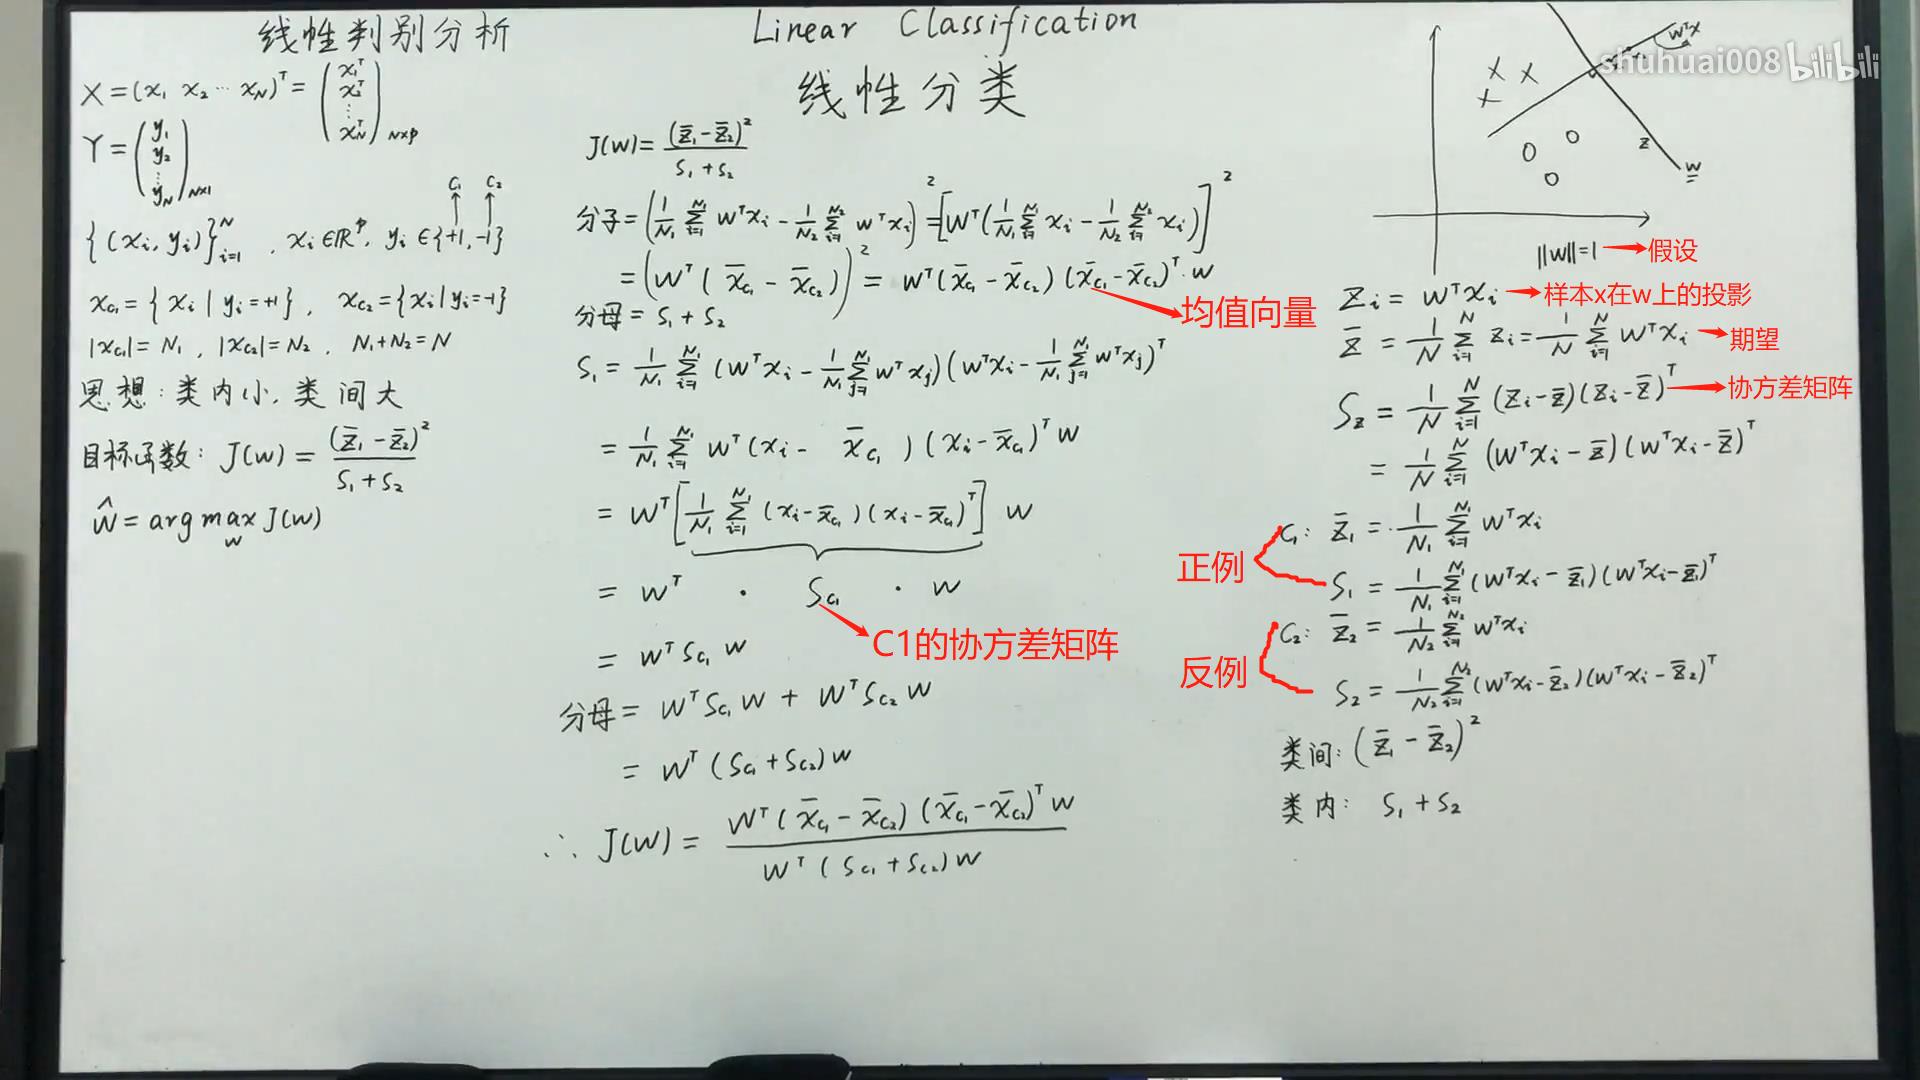 线性判别分析
X = (x₁ x₂ ⋯ x_N)ᵀ = (x₁ᵀ x₂ᵀ ⋮ x_Nᵀ)_{N×p}
Y = (y₁ y₂ ⋮ y_N)_{N×1}
C₁ C₂
{(xᵢ, yᵢ)}_{i=1}^{N} , xᵢ ∈ ℝᵖ, yᵢ ∈ {+1, -1}
x_{C₁} = {xᵢ | yᵢ = +1} , x_{C₂} = {xᵢ | yᵢ = -1}
|x_{C₁}| = N₁ , |x_{C₂}| = N₂ , N₁ + N₂ = N
思想: 类内小, 类间大
目标函数: J(w) = (z̄₁ - z̄₂)² / (S₁ + S₂)
ŵ = arg max_w J(w)
Linear Classification
线性分类
J(w) = (z̄₁ - z̄₂)² / (S₁ + S₂)
分子 = (1/N₁ Σ_{i=1}^{N₁} wᵀxᵢ - 1/N₂ Σ_{i=1}^{N₂} wᵀxᵢ)² = [wᵀ(1/N₁ Σ_{i=1}^{N₁} xᵢ - 1/N₂ Σ_{i=1}^{N₂} xᵢ)]²
= (wᵀ(x̄_{C₁} - x̄_{C₂}))² = wᵀ(x̄_{C₁} - x̄_{C₂})(x̄_{C₁} - x̄_{C₂})ᵀ·w
均值向量
分母 = S₁ + S₂
S₁ = 1/N₁ Σ_{i=1}^{N₁} (wᵀxᵢ - 1/N₁ Σ_{j=1}^{N₁} wᵀxⱼ)(wᵀxᵢ - 1/N₁ Σ_{j=1}^{N₁} wᵀxⱼ)ᵀ
= 1/N₁ Σ_{i=1}^{N₁} wᵀ(xᵢ - x̄_{C₁})(xᵢ - x̄_{C₁})ᵀw
= wᵀ[1/N₁ Σ_{i=1}^{N₁} (xᵢ - x̄_{C₁})(xᵢ - x̄_{C₁})ᵀ] w
= wᵀ · S_{C₁} · w
C1的协方差矩阵
= wᵀS_{C₁}w
分母 = wᵀS_{C₁}w + wᵀS_{C₂}w
= wᵀ(S_{C₁} + S_{C₂})w
∴ J(w) = wᵀ(x̄_{C₁} - x̄_{C₂})(x̄_{C₁} - x̄_{C₂})ᵀw / wᵀ(S_{C₁} + S_{C₂})w
wᵀx
shuhuai008 bilibili
z
w
||w||=1 假设
zᵢ = wᵀxᵢ 样本x在w上的投影
z̄ = 1/N Σ_{i=1}^{N} zᵢ = 1/N Σ_{i=1}^{N} wᵀxᵢ 期望
S_z = 1/N Σ_{i=1}^{N} (zᵢ - z̄)(zᵢ - z̄)ᵀ 协方差矩阵
= 1/N Σ_{i=1}^{N} (wᵀxᵢ - z̄)(wᵀxᵢ - z̄)ᵀ
正例
C₁: z̄₁ = 1/N₁ Σ_{i=1}^{N₁} wᵀxᵢ
S₁ = 1/N₁ Σ_{i=1}^{N₁} (wᵀxᵢ - z̄₁)(wᵀxᵢ - z̄₁)ᵀ
反例
C₂: z̄₂ = 1/N₂ Σ_{i=1}^{N₂} wᵀxᵢ
S₂ = 1/N₂ Σ_{i=1}^{N₂} (wᵀxᵢ - z̄₂)(wᵀxᵢ - z̄₂)ᵀ
类间: (z̄₁ - z̄₂)²
类内: S₁ + S₂